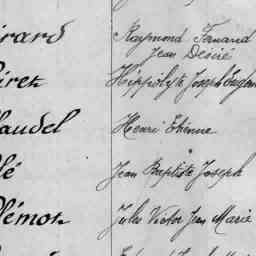 irard Raymond Fernand
Jean Désiré
iret Hippolyte Joseph Eugène
audel Henri Etienne
lé Jean Baptiste Joseph
lémon Jules Victor Jean Marie